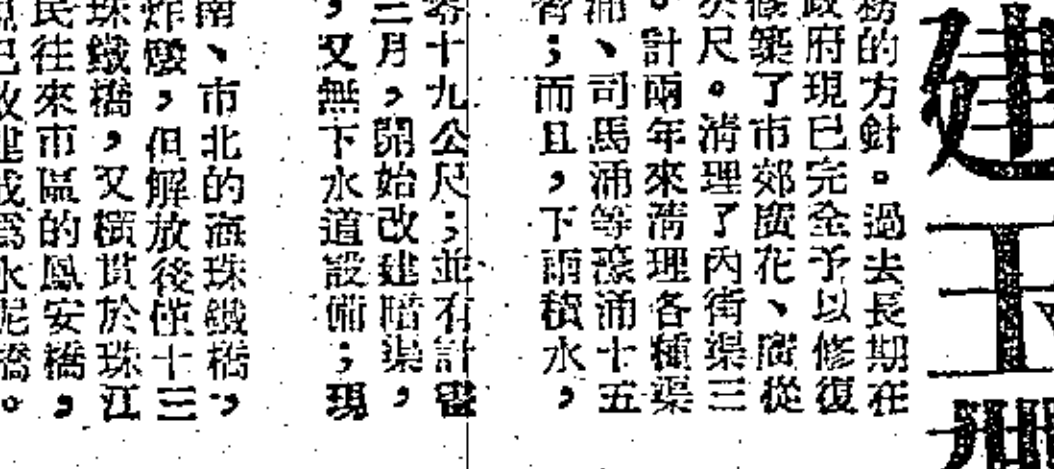 建玉
務的方針。過去長期在
政府現已完全予以修復
修築了市郊廣花、廣從
尺。清理了內街渠三
。計兩年來清理各種渠
涌、司馬涌等濠涌十五
;而且,下雨積水,
零十九公尺;並有計
三月,開始改建暗渠,
,又無下水道設備;現
南、市北的海珠鐵橋,
炸燬,但解放後僅十三
珠鐵橋,又橫貫於珠江
民往來市區的鳳安橋,
已改建成為水泥橋。